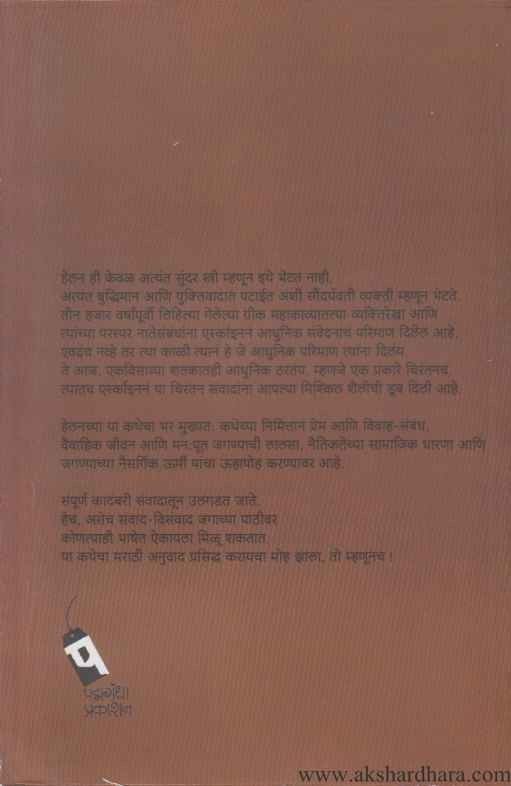 हेलन ही केवळ अत्यंत सुंदर स्त्री म्हणून इथे भेटत नाही.
अत्यंत बुद्धिमान आणि युक्तिवादात पटाईत अशी सौंदर्यवती व्यक्ती म्हणून भेटते.
तीन हजार वर्षांपूर्वी लिहिल्या गेलेल्या ग्रीक महाकाव्यातल्या व्यक्तिरेखा आणि
त्यांच्या परस्पर नातेसंबंधांना एर्स्काइननं आधुनिक संवेदनांचं परिमाण दिलेलं आहे.
एवढंच नव्हे तर त्या काळी त्यानं हे जे आधुनिक परिमाण त्यांना दिलंय
ते आज, एकविसाव्या शतकातही आधुनिक ठरतंय. म्हणजे एक प्रकारे चिरंतनच.
त्यातच एर्स्काइननं या चिरंतन संवादांना आपल्या मिश्किल शैलीची डूब दिली आहे.
हेलनच्या या कथेचा भर मुख्यतः कथेच्या निमित्तानं प्रेम आणि विवाह-संबंध,
वैवाहिक जीवन आणि मनःपूत जगण्याची लालसा, नैतिकतेच्या सामाजिक धारणा आणि
जगण्याच्या नैसर्गिक ऊर्मी यांचा ऊहापोह करण्यावर आहे.
संपूर्ण कादंबरी संवादातून उलगडत जाते.
हेच, असेच संवाद-विसंवाद जगाच्या पाठीवर
कोणत्याही भाषेत ऐकायला मिळू शकतात.
या कथेचा मराठी अनुवाद प्रसिद्ध करायचा मोह झाला, तो म्हणूनच !
प
पद्मगंधा
प्रकाशन
www.akshardhara.com